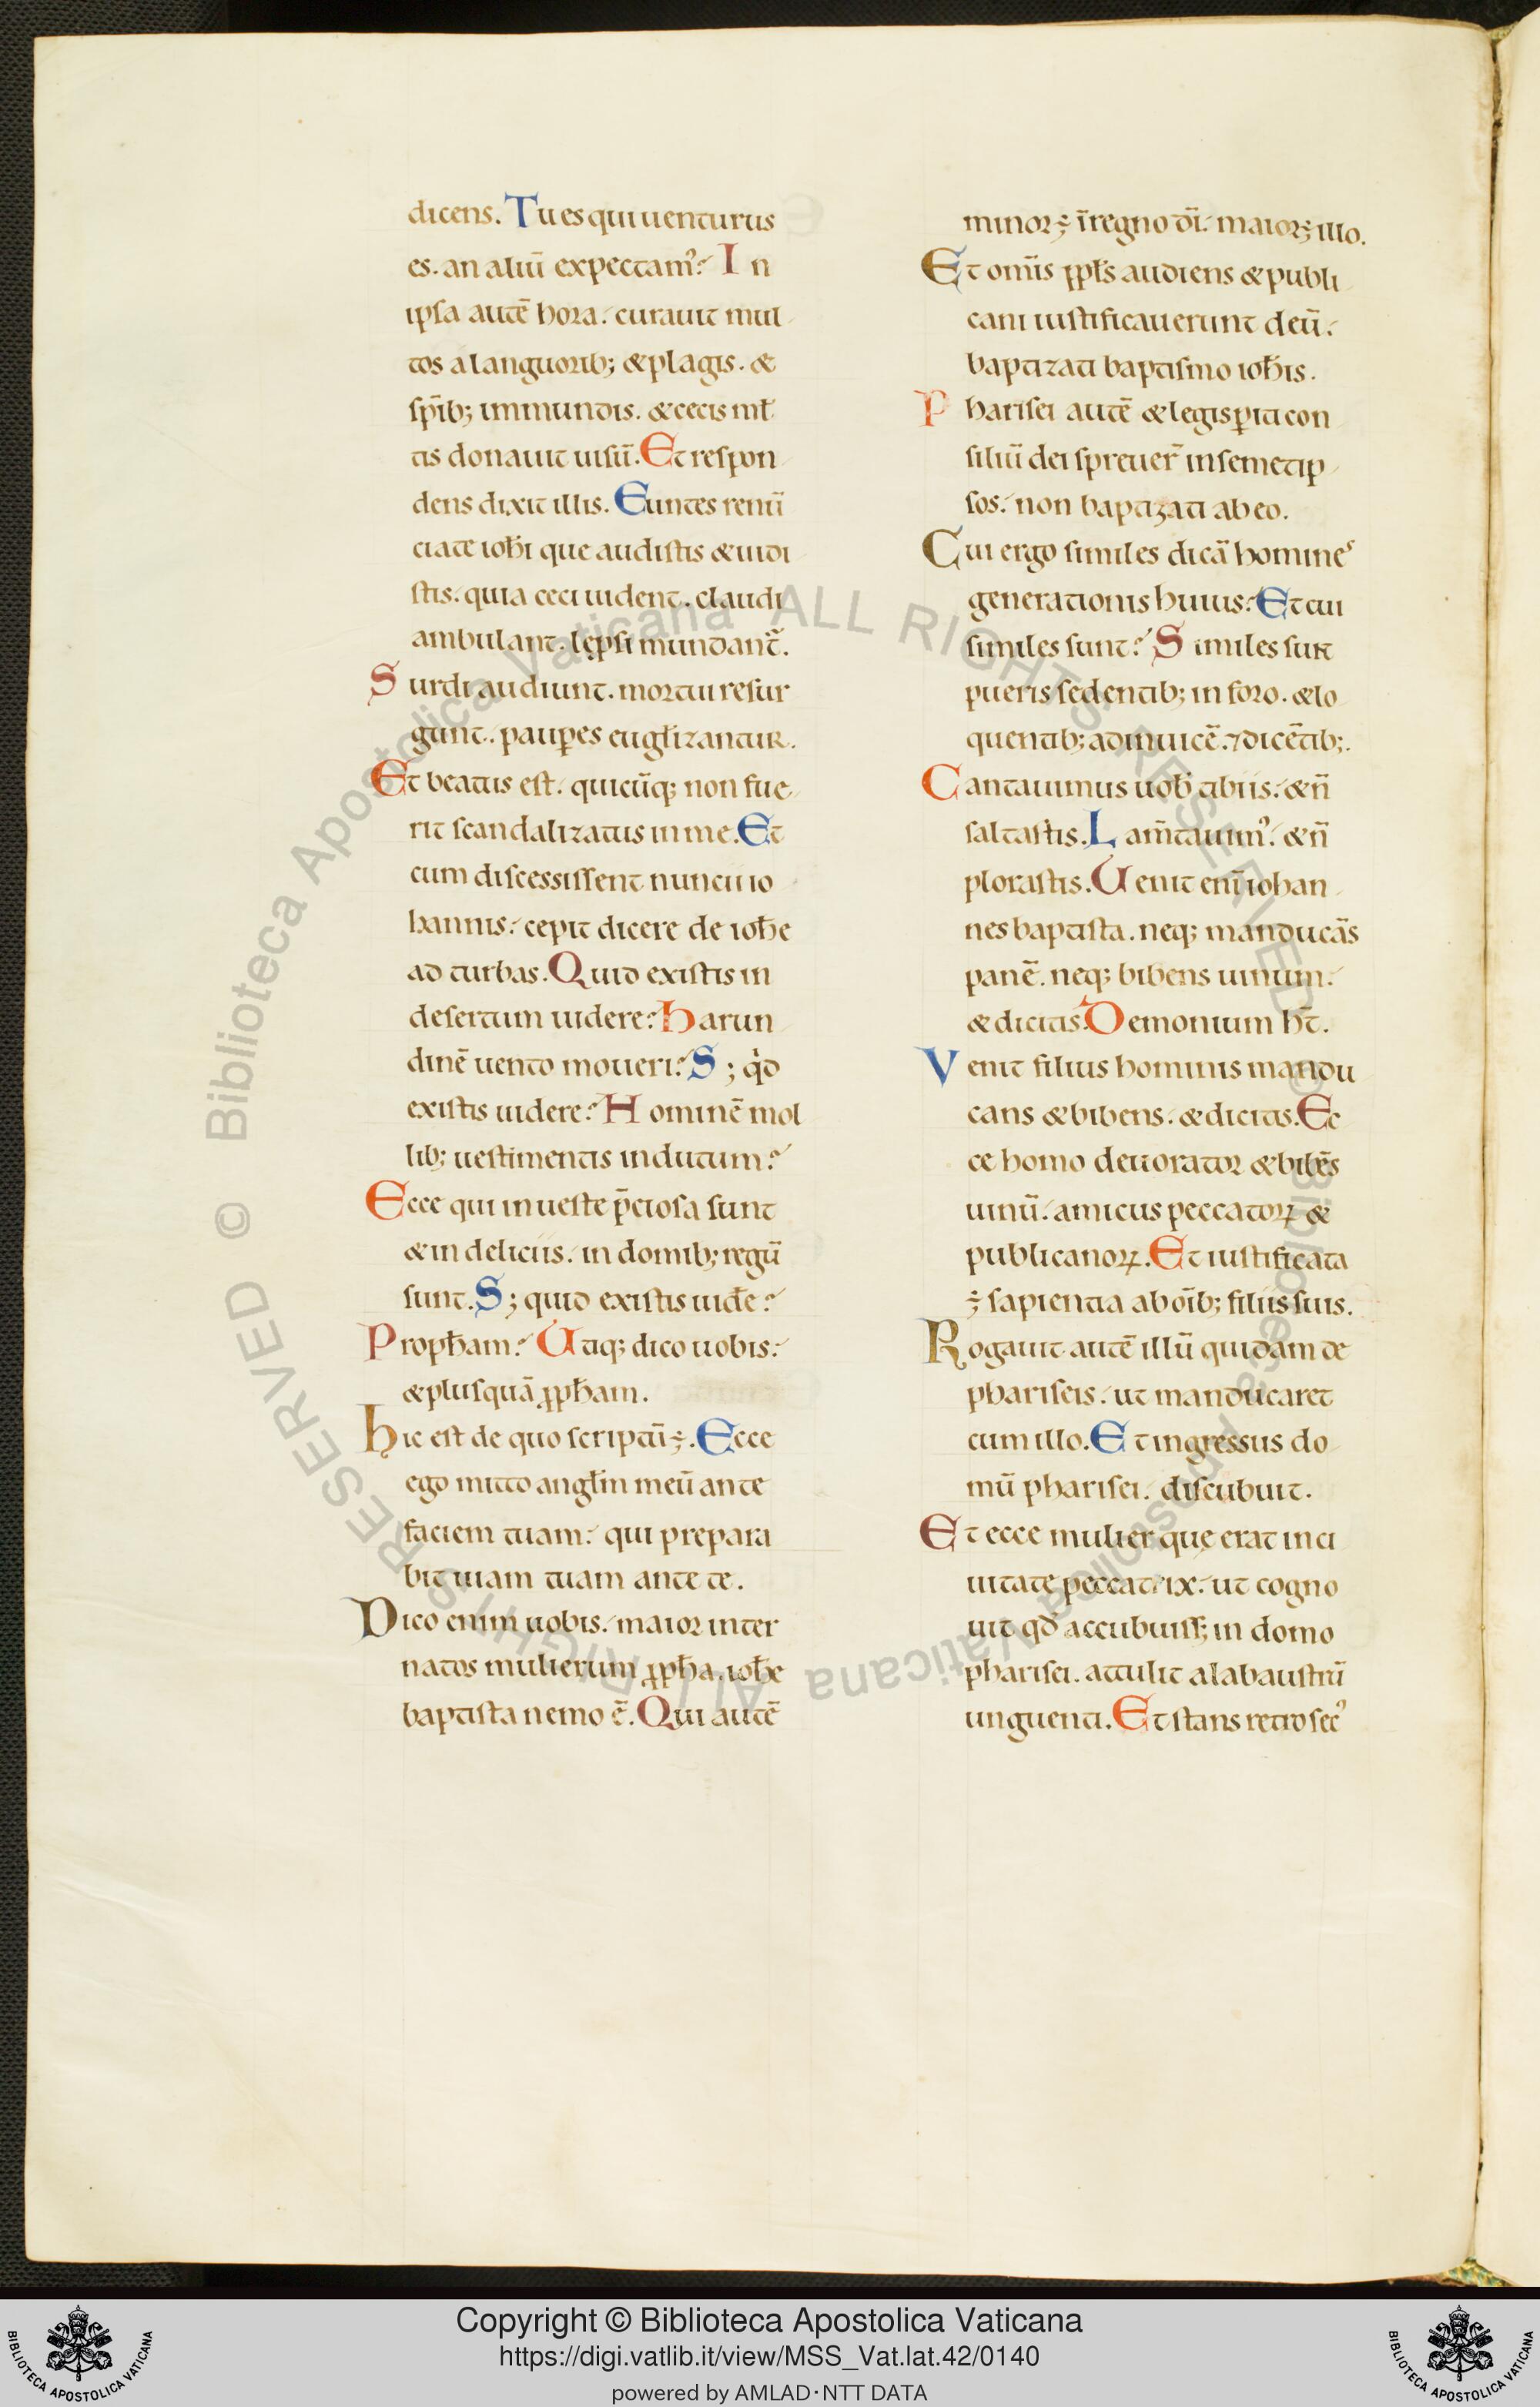 dicens. Tu es qui uenturus
es. an aliū expectam᾿? In
ipsa autē hora. curauit mul
tos a languorib; & plagis. &
sp̄ib; immundis. & cecis ml̄
tis donauit uisū. Et respon
dens dixit illis. Euntes renū
ciate ioħi que audistis & uidi
stis. quia ceci uident. claudi
ambulant. lepsi mundant̄.
Surdi audiunt. mortui resur
gunt. pauꝑes eugl̄izantur.
Et beatus est. quicūq; non fue
rit scandalizatus in me. Et
cum discessissent nuncii io
hannis. cepit dicere de ioħe
ad turbas. Quid existis in
desertum uidere? Harun
dinē uento moueri? S; qd
existis uidere? Hominē mol
lib; uestimentis indutum?
Ecce qui in ueste p̄ciosa sunt
& in deliciis. in domib; regū
sunt. S; quid existis uid̄e?
Propħam? Utiq; dico uobis.
& plusquā ꝓpħam.
Hic est de quo scriptū ÷. Ecce
ego mitto angl̄m meū ante
faciem tuam. qui prepara
bit uiam tuam ante te.
Dico enim uobis. maior inter
natos mulierum ꝓpħa. ioħe
baptista nemo ē. Qui autē
minor ÷ ī regno dī. maior ÷ illo.
Et omīs ꝓpl̄s audiens & publi
cani iustificauerunt deū.
baptizati baptismo ioħis.
Pharisei autē & legisꝑiti con
siliū dei spreuer̄ in semetip
sos. non baptizati ab eo.
Cui ergo similes dicā homines
generationis huius. Et cui
similes sunt? Similes sunt
pueris sedentib; in foro. & lo
quentib; adinuicē. ⁊ dicētib;.
Cantauimus uob̄ tibiis. & n̄
saltastis. Lam̄tauim᾿. & n̄
plorastis. Uenit eni̅ iohan
nes baptista. neq; manducās
panē. neq; bibens uinum.
& dicitis. Demonium ħt.
Venit filius hominis mandu
cans & bibens. & dicitis. Ec
ce homo deuorator & bibēs
uinū. amicus peccatoꝝ &
publicanoꝝ. Et iustificata
÷ sapientia ab oīb; filiis suis.
Rogauit autē illū quidam de
phariseis. ut manducaret
cum illo. Et ingressus do
mū pharisei. discubuit.
Et ecce mulier que erat in ci
uitate peccatrix. ut cogno
uit qđ accubuiss; in domo
pharisei. attulit alabaustrū
unguenti. Et stans retro sec᾿
© Biblioteca Apostolica Vaticana ALL RIGHTS RESERVED © Biblioteca Apostolica Vaticana ALL RIGHTS RESERVED
BIBLIOTECA APOSTOLICA VATICANA
Copyright © Biblioteca Apostolica Vaticana
https://digi.vatlib.it/view/MSS_Vat.lat.42/0140
powered by AMLAD·NTT DATA
BIBLIOTECA APOSTOLICA VATICANA